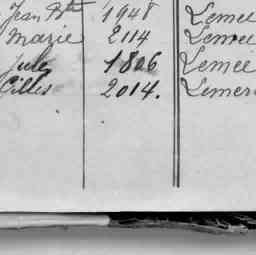 Jean Bte 1948 Lemee
Marie 2114 Lemee
Jule 1806 Lemee
Gilles 2014. Lemer